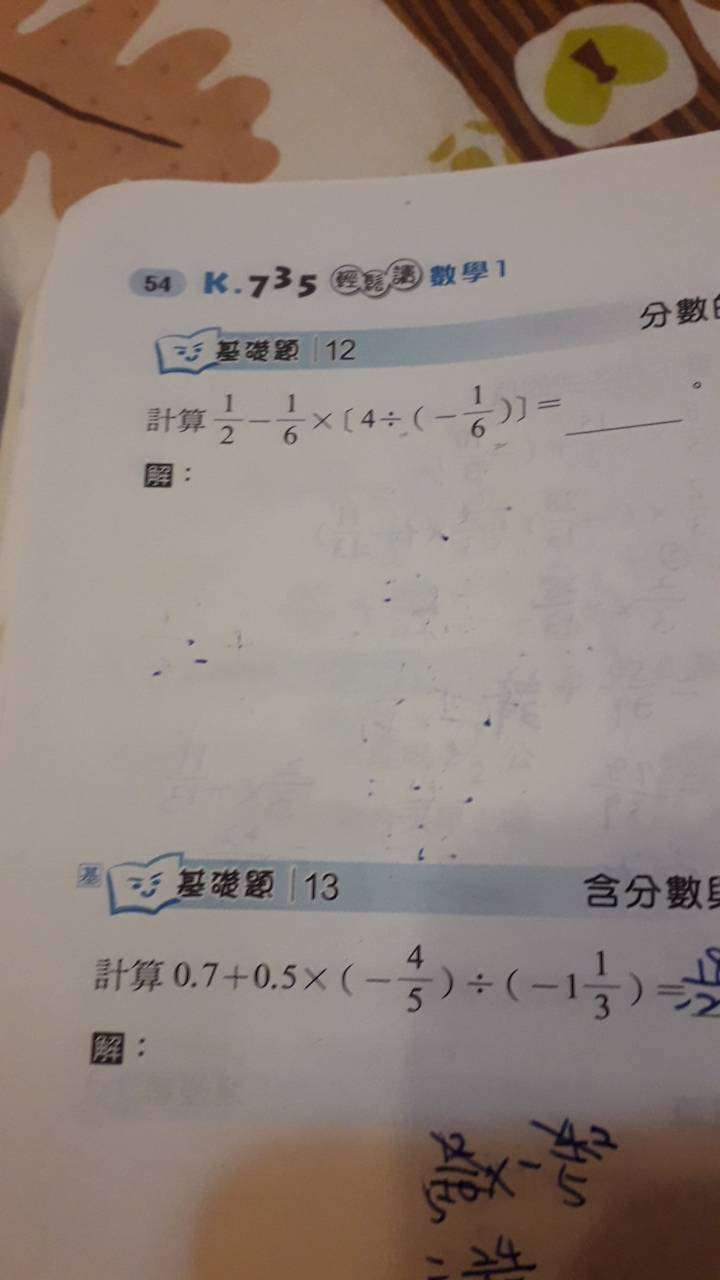 54 K.735 輕鬆讀 數學1
分數的
基礎題 12
計算 1/2 - 1/6 × 〔4 ÷ ( - 1/6 )〕= ______ 。
解：
基 基礎題 13
含分數與
計算 0.7 + 0.5 × ( - 4/5 ) ÷ ( - 1 1/3 ) =
解：